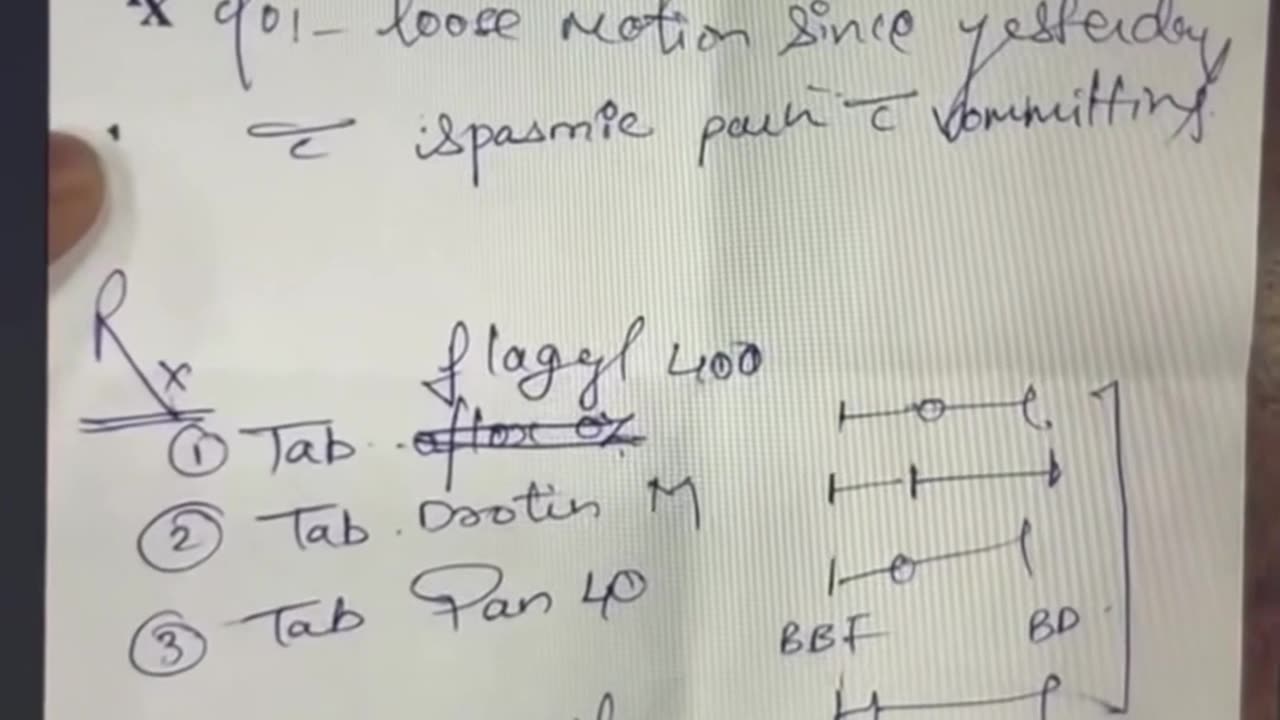 loose motion since yesterday
c ispasmic pain c vommitting
Rx
flagyl 400
① Tab. oflox oz
② Tab. Drotin M
③ Tab Pan 40
BBF BD